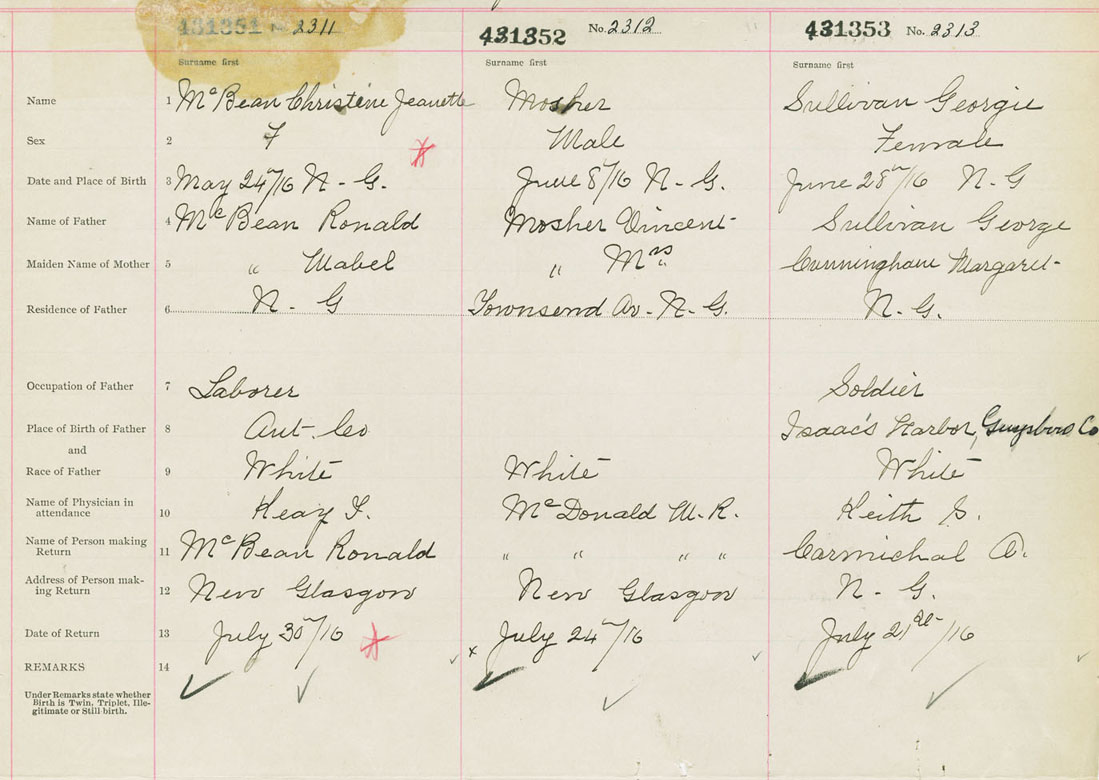 431351 No. 2311 431352 No. 2312 431353 No. 2313
Surname first Surname first Surname first
Name 1 McBean Christine Jeanette Mosher Sullivan Georgie
Sex 2 F Male Female
Date and Place of Birth 3 May 24/16 N-G. June 8/16 N-G. June 28/16 N.G
Name of Father 4 McBean Ronald Mosher Vincent Sullivan George
Maiden Name of Mother 5 " Mabel " Mrs Cunningham Margaret
Residence of Father 6 N-G Townsend Av-N-G. N.G.
Occupation of Father 7 Laborer Soldier
Place of Birth of Father 8 Ant. Co Isaac's Harbor, Guysboro Co
and
Race of Father 9 White White White
Name of Physician in
attendance 10 F. McDonald M.R. Keith S.
Name of Person making
Return 11 McBean Ronald " " " " Carmichal A.
Address of Person mak-
ing Return 12 New Glasgow New Glasgow N-G.
Date of Return 13 July 30/16 x July 24/16 July 21/16
REMARKS 14
Under Remarks state whether
Birth is Twin, Triplet, Ille-
gitimate or Still-birth.